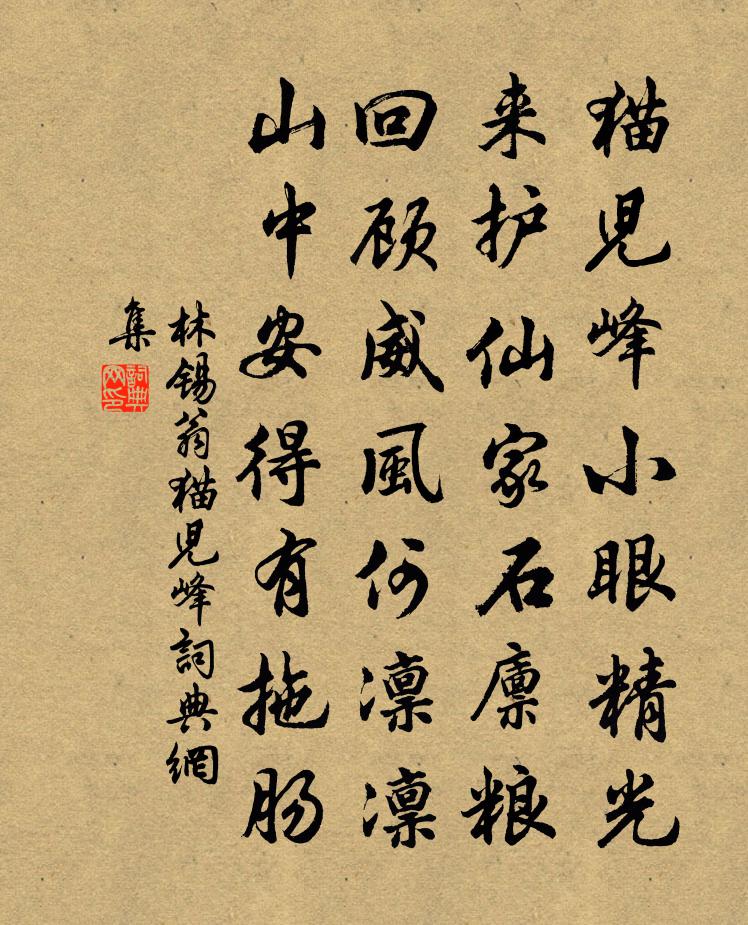 猫児峰小眼精光
来护仙家石廪粮
回顾威風何凛凛
山中安得有拖肠
林锡翁猫児峰詞典網
集
詞典
网印